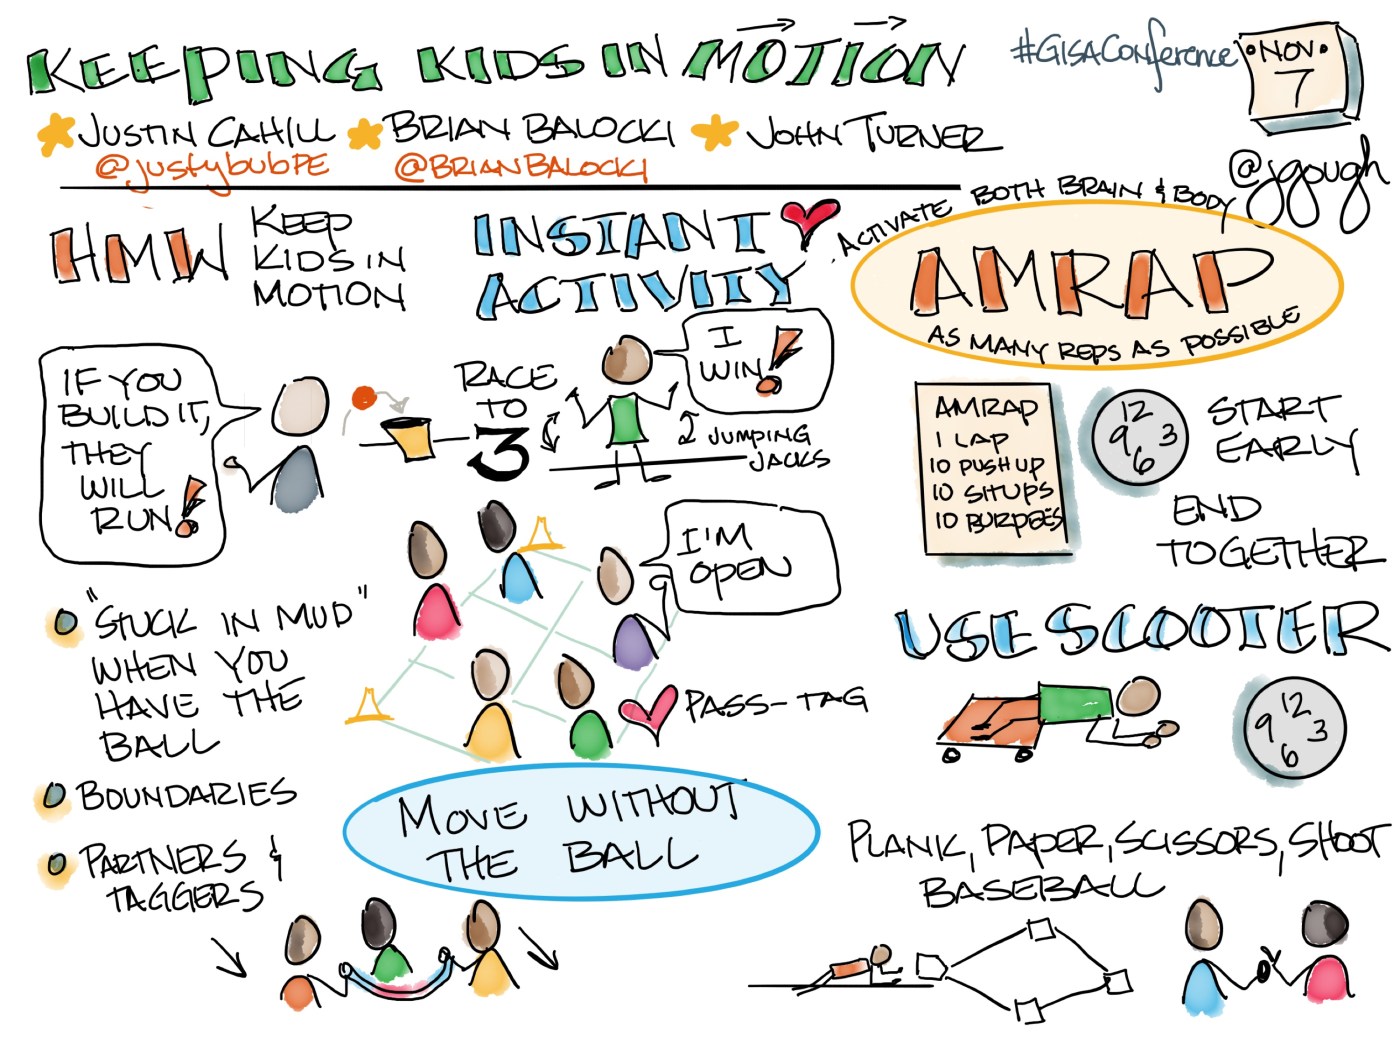 KEEPING KIDS IN MOTION
#GISAConference
NOV
7
JUSTIN CAHILL
BRIAN BALOCKI
JOHN TURNER
@justybubPE
@BRIANBALOCKI
@jgough
HMW
KEEP
KIDS IN
MOTION
INSTANT
ACTIVITY
ACTIVATE BOTH BRAIN & BODY
AMRAP
AS MANY REPS AS POSSIBLE
IF YOU
BUILD IT,
THEY
WILL
RUN!
RACE
TO
3
I
WIN!
2 JUMPING
JACKS
AMRAP
1 LAP
10 PUSH UP
10 SITUPS
10 BURPEES
12
9 3
6
START
EARLY
END
TOGETHER
"STUCK IN MUD"
WHEN YOU
HAVE THE
BALL
I'M
OPEN
PASS-TAG
USE SCOOTER
12
9 3
6
BOUNDARIES
PARTNERS &
TAGGERS
MOVE WITHOUT
THE BALL
PLANK, PAPER, SCISSORS, SHOOT
BASEBALL